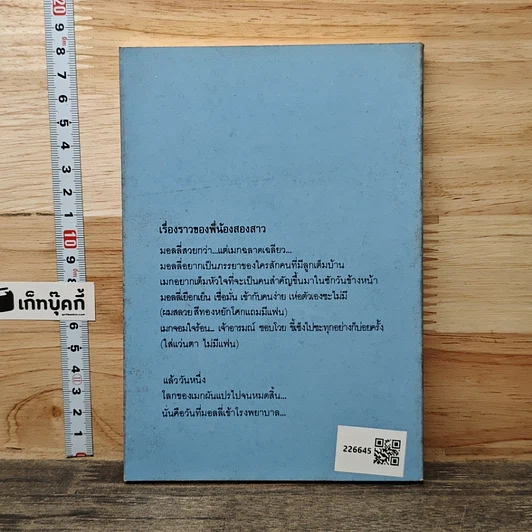 เรื่องราวของพี่น้องสองสาว
มอลลี่สวยกว่า...แต่เมกฉลาดเฉลียว...
มอลลี่อยากเป็นภรรยาของใครสักคนที่มีลูกเต็มบ้าน
เมกอยากเต็มหัวใจที่จะเป็นคนสำคัญขึ้นมาในซักวันข้างหน้า
มอลลี่เยือกเย็น เชื่อมั่น เข้ากับคนง่าย เห่อตัวเองซะไม่มี
(ผมสลวย สีทองหยักโศกแถมมีแฟน)
เมกจอมใจร้อน... เจ้าอารมณ์ ชอบโวย ขี้เซ็งไปซะทุกอย่างก็บ่อยครั้ง
(ใส่แว่นตา ไม่มีแฟน)
แล้ววันหนึ่ง
โลกของเมกผันแปรไปจนหมดสิ้น...
นั่นคือวันที่มอลลี่เข้าโรงพยาบาล...
226645
เก็ทบุ๊คกี้
20
9
8
7
6
5
4
3
2
1
10
9
8
7
6
5
4
3
2
1